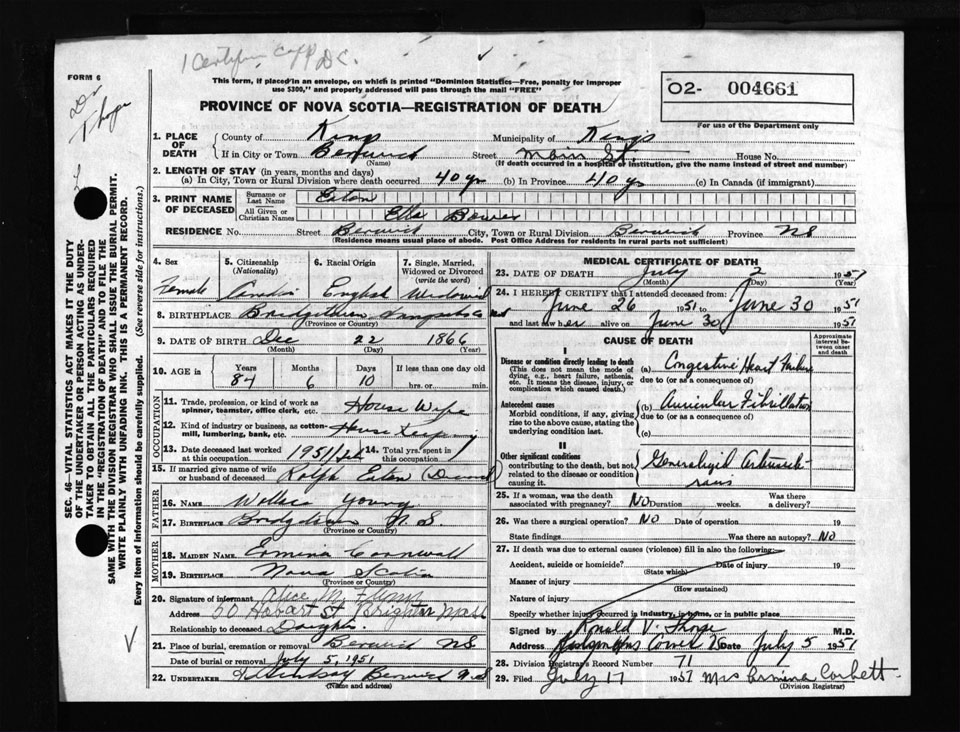 1 Certified Copy D.C.
FORM 6
Dr Thorpe
This form, if placed in an envelope, on which is printed "Dominion Statistics—Free, penalty for improper
use $300," and properly addressed will pass through the mail "FREE"
PROVINCE OF NOVA SCOTIA—REGISTRATION OF DEATH
O2- 004661
For use of the Department only
SEC. 46—VITAL STATISTICS ACT MAKES IT THE DUTY
OF THE UNDERTAKER OR PERSON ACTING AS UNDER-
TAKER TO OBTAIN ALL THE PARTICULARS REQUIRED
IN THE "REGISTRATION OF DEATH" AND TO FILE THE
SAME WITH THE DIVISION REGISTRAR WHO SHALL ISSUE THE BURIAL PERMIT.
WRITE PLAINLY WITH UNFADING INK. THIS IS A PERMANENT RECORD.
Every item of information should be carefully supplied. (See reverse side for instructions.)
1. PLACE OF DEATH County of Kings Municipality of Kings
If in City or Town Berwick Street Main St. House No.
(Name) (If death occurred in a hospital or institution, give the name instead of street and number)
2. LENGTH OF STAY (in years, months and days)
(a) In City, Town or Rural Division where death occurred 40 yrs (b) In Province 40 yrs (c) In Canada (if immigrant)
3. PRINT NAME OF DECEASED Surname or Last Name Eaton
All Given or Christian Names Ella Bower
RESIDENCE No. Street Berwick City, Town or Rural Division Berwick Province NS
(Residence means usual place of abode. Post Office Address for residents in rural parts not sufficient)
4. Sex Female
5. Citizenship (Nationality) Canadian
6. Racial Origin English
7. Single, Married, Widowed or Divorced (write the word) Widowed
8. BIRTHPLACE Bridgetown Annapolis Co NS
(Province or Country)
9. DATE OF BIRTH Dec 22 1866
(Month) (Day) (Year)
10. AGE in Years 84 Months 6 Days 10 If less than one day old hrs. or min.
OCCUPATION
11. Trade, profession, or kind of work as spinner, teamster, office clerk, etc. House Wife
12. Kind of industry or business, as cotton-mill, lumbering, bank, etc. House Keeping
13. Date deceased last worked at this occupation 1951/ 14. Total yrs. spent in this occupation
15. If married give name of wife or husband of deceased Ralph Eaton (Deceased)
FATHER
16. NAME Young
17. BIRTHPLACE Bridgetown N.S.
(Province or Country)
MOTHER
18. MAIDEN NAME Ermina Cornwall
19. BIRTHPLACE Nova Scotia
(Province or Country)
20. Signature of informant Alice M. Flynn
Address 60 Hobart St Brighton Mass
Relationship to deceased Daughter
21. Place of burial, cremation or removal Berwick NS
Date of burial or removal July 5, 1951
22. UNDERTAKER Lindsay Berwick N.S
(Name and address)
MEDICAL CERTIFICATE OF DEATH
23. DATE OF DEATH July 2 1951
(Month) (Day) (Year)
24. I HEREBY CERTIFY that I attended deceased from:
June 26 1951 to June 30 1951
and last saw her alive on June 30 1951
CAUSE OF DEATH
Approximate interval between onset and death
I
Disease or condition directly leading to death
(This does not mean the mode of dying, e.g., heart failure, asthenia, etc. It means the disease, injury, or complication which caused death.)
(a) Congestive Heart Failure
due to (or as a consequence of)
Antecedent causes
Morbid conditions, if any, giving rise to the above cause, stating the underlying condition last.
(b) Auricular Fibrillation
due to (or as a consequence of)
(c)
II
Other significant conditions
contributing to the death, but not related to the disease or condition causing it.
Generalized
25. If a woman, was the death associated with pregnancy? NO Duration weeks. Was there a delivery?
26. Was there a surgical operation? NO Date of operation 19
State findings Was there an autopsy? NO
27. If death was due to external causes (violence) fill in also the following:
Accident, suicide or homicide? Date of injury 19
(State which)
Manner of injury
(How sustained)
Nature of injury
Specify whether injury occurred in industry, in home, or in public place
Signed by Ronald V. Thorpe M.D.
Address Date July 5 1951
28. Division Registrar's Record Number 71
29. Filed July 17 1951 Mrs Ermina Corbett
(Division Registrar)